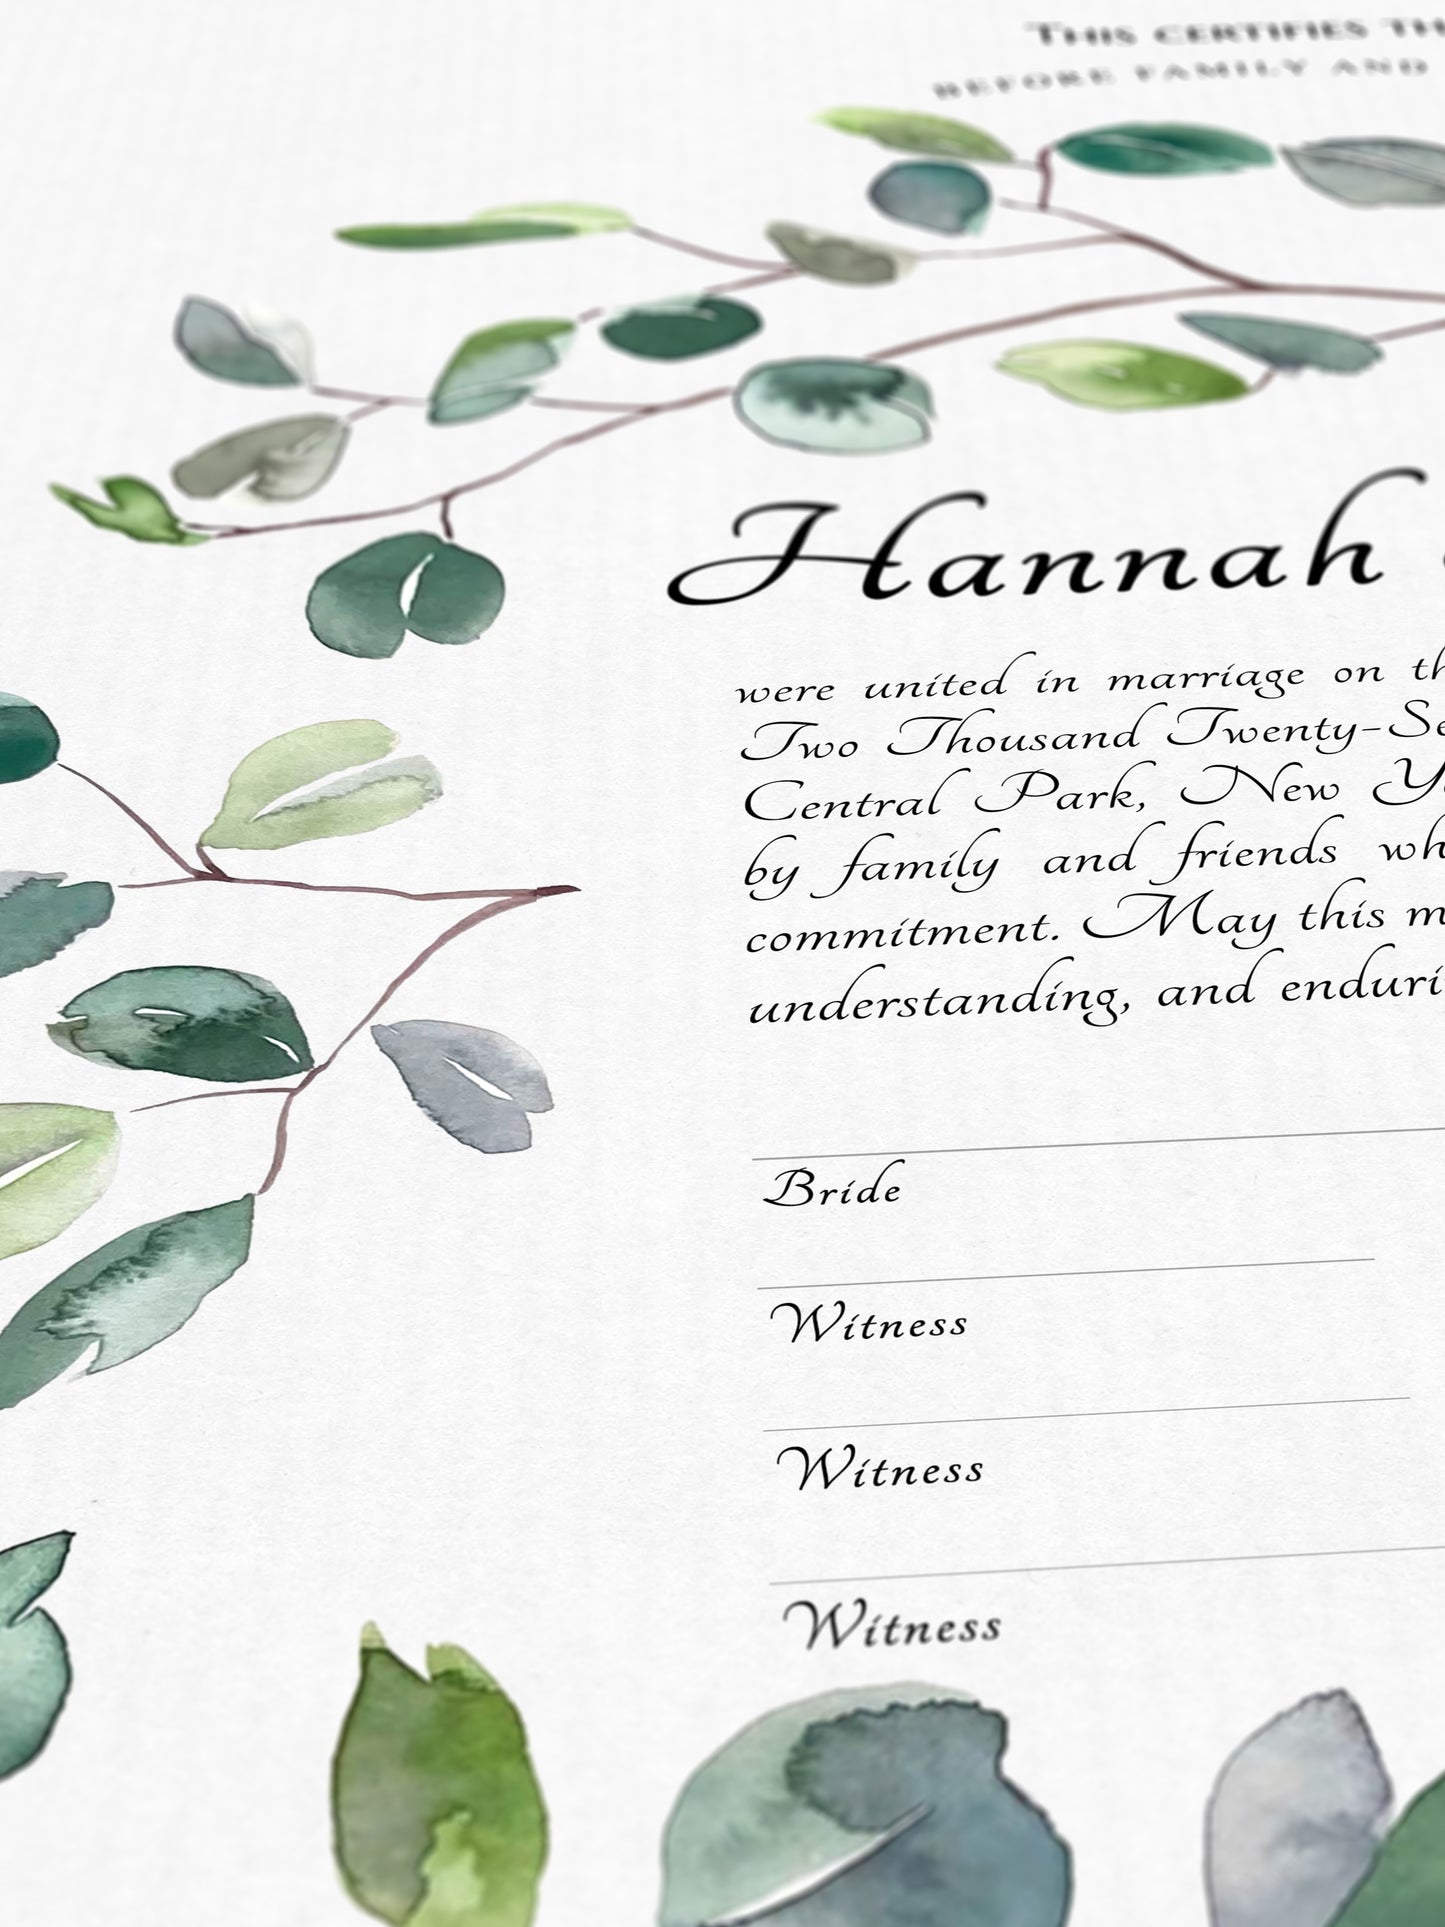 THIS CERTIFIES
BEFORE FAMILY AND
Hannah
were united in marriage on
Two Thousand Twenty-Se
Central Park, New Yo
by family and friends wh
commitment. May this m
understanding, and enduri
Bride
Witness
Witness
Witness